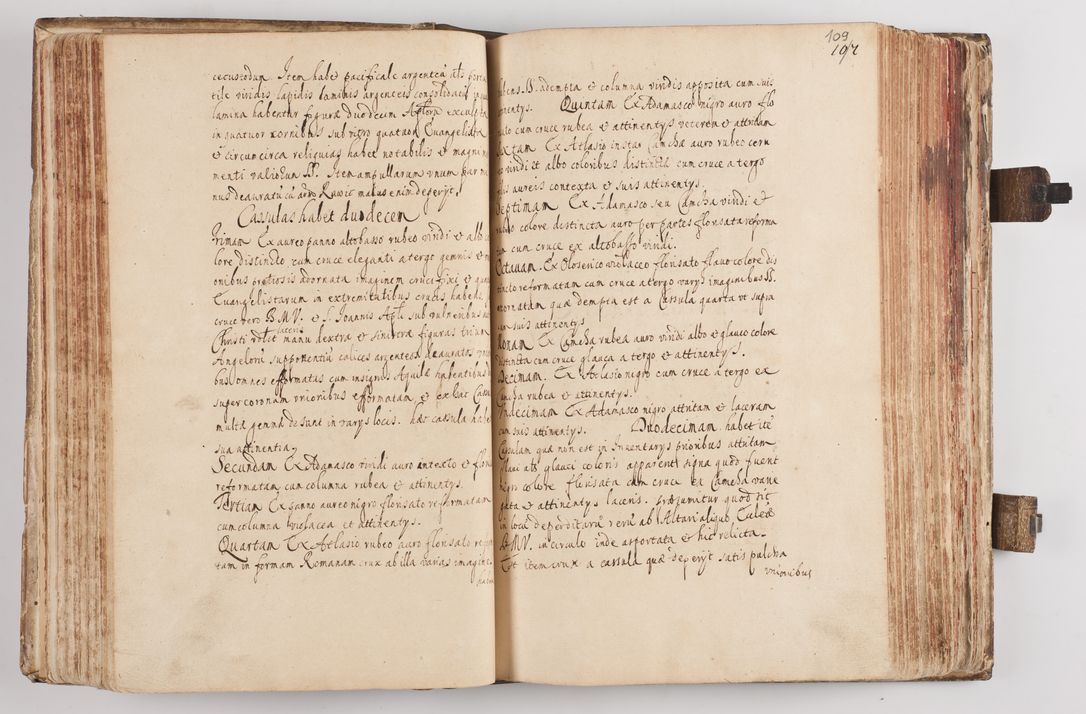 cecustodun. Item habet pacificale argenteũ als porta
tile viridis lapidis laminis argenteis consolidatũ
lamina habentur figuræ duodecim Aplorũ exculptæ
in quatuor cornibus sub vitro quatuor Euangelistæ
& circumcirca reliquias habet notabilis & magni
menti valiorum SS. Item ampullarum unum par
nus deauratũ
Cassulas habet duodecem
Primam Ex aureo panno altobasso rubeo viridi & albo co
lore distincto cum cruce eleganti a tergo gemmis &
onibus pretiosis adornata imaginem crucifixi & quatuor
Euangelistarum in extremitatibus crucis habens,
cruce vero B.M.V. & S. Joannis Apli sub vulneribus
Christi manu dextra & sinistra figuras trium
Angelorũ supportentiũ calices argenteos deauratos
bus omnes efformatas cum insignis Aquilæ habentibus
super coronam unionibus efformatam, & ex hac Cassula
multæ gemmæ desunt in varys locis. hæc cassula habet
sua attinentia.
Secundam Ex Adamasco viridi auro antexto & flori
reformatam cum columna rubea & attinentys.
Tertiam Ex panno aureo nigro florisato reformatam
cum columna violacea et attinentys.
Quartam Ex Atlasio rubeo auro florisato
tam in formam Romanam crux ab illa varias imagines
109
107
SS. adempta & columna viridis apposita cum suis
attinentys. Quintam Ex Adamasco nigro auro flo
risato cum cruce rubea & attinentys veterem & attritam
Sextam Ex Atlasio instar Camchæ auro rubeo ceru
viridi et albo coloribus distincta cum cruce a tergo
filis aureis contexta & suis attinentys.
Septimam Ex Adamasco seu Camcha viridi &
rubeo colore distincta auro per partes florisata reforma
tam cum cruce ex altobasso viridi.
Octauam. Ex Oloserico violaceo florisato flauo colore dis
tincto reformatam cum cruce a tergo varys imaginibus SS.
exornatam quæ dempta est a Cassula quarta vt supra
cum suis attinentys
Nonam Ex Camcha rubea auro viridi albo & glauco colore
distincta cum cruce glauca a tergo & attinentys.
Decimam. Ex Atlasio nigro cum cruce a tergo ex
Camcha rubea & attinentys.
Undecimam Ex Adamasco nigro attritam & laceram
cum suis attinentys. Duodecimam. habet itẽ
Cassulam quæ non est in Inuentarys prioribus attritam
flaui als glauci coloris apparent signa quod fuerit
nigro colore florisata cum cruce ex Camcha varie
gata & attinentys laceris. præsumitur quod sit
in locũ deperditarũ rerũ ab Altari aliquo
B.M.V. in circulo inde asportata & hic relicta.
Est item crux a cassula quæ deperijt satis pulchra
unionibus